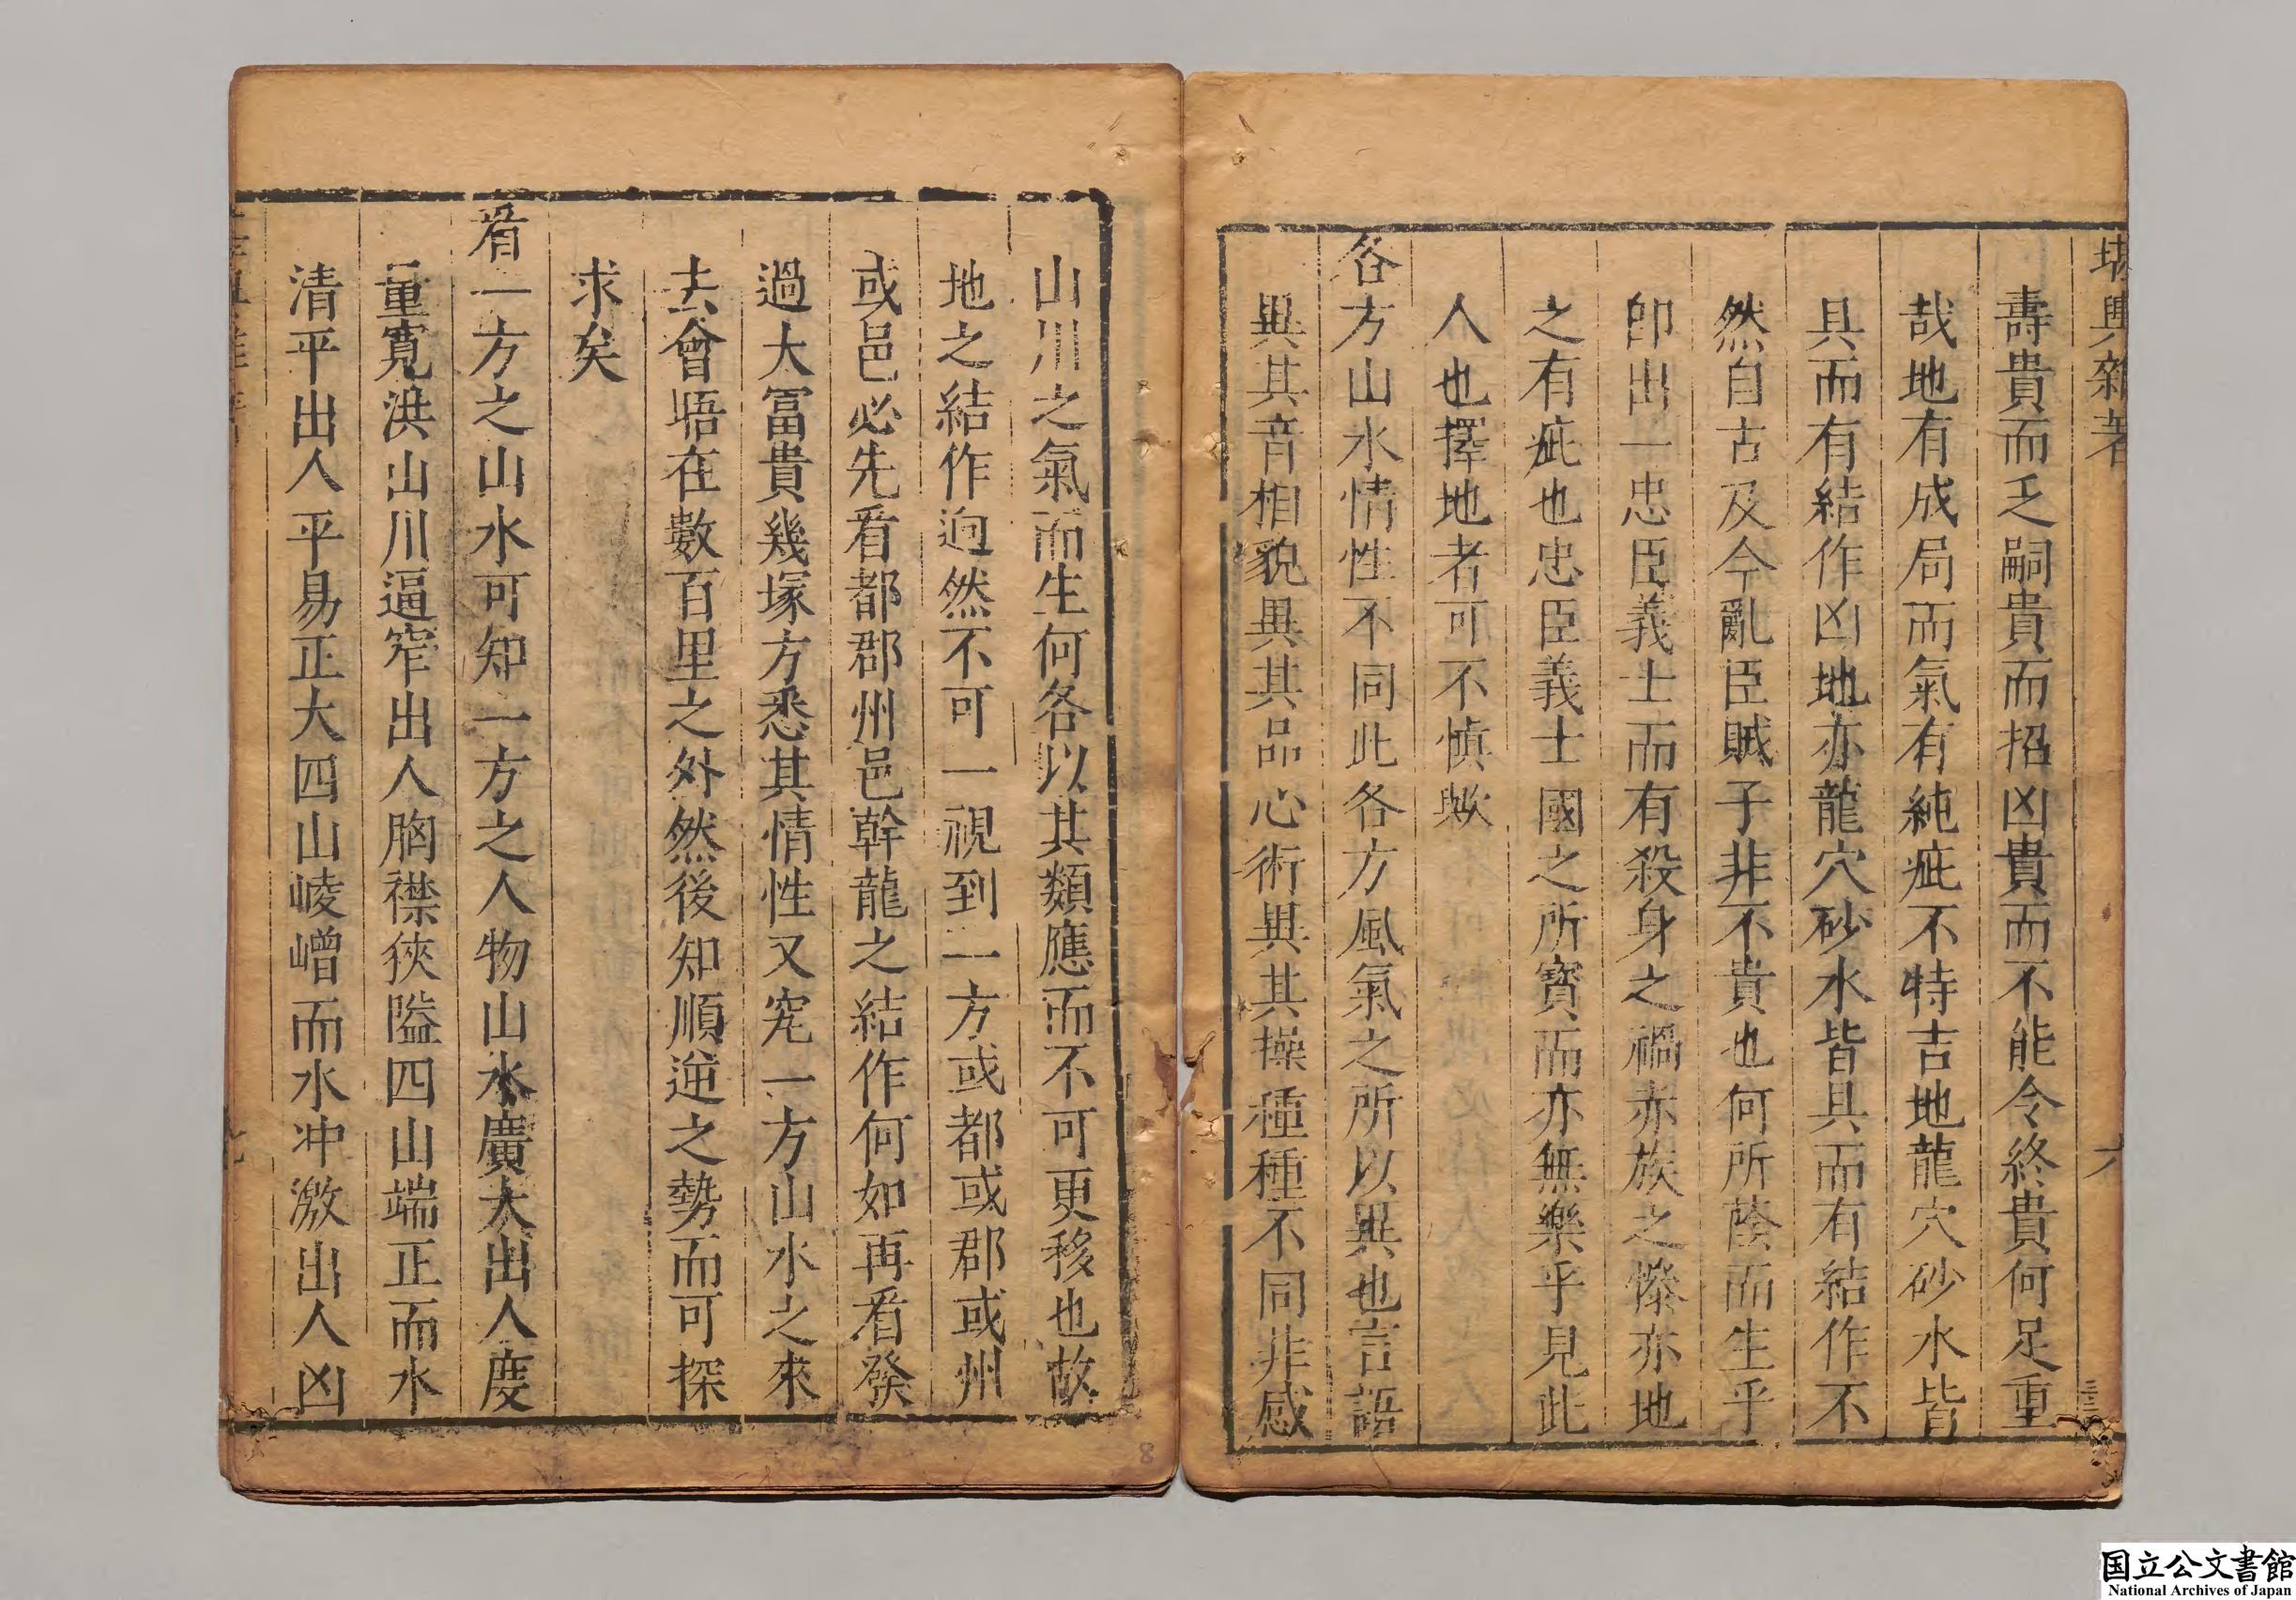 堪輿雜著
六
壽貴而乏嗣貴而招凶貴而不能令終貴何足重
哉地有成局而氣有純疵不特吉地龍穴砂水皆
具而有結作凶地亦龍穴砂水皆具而有結作不
然自古及今亂臣賊子非不貴也何所蔭而生乎
卽出一忠臣義士而有殺身之禍亦族之慘亦地
之有疵也忠臣義士國之所寶而亦無樂乎見此
人也擇地者可不慎歟
各方山水情性不同此各方風氣之所以異也言語
異其音相貌異其品心術異其操種種不同非感
山川之氣而生何各以其類應而不可更移也故
地之結作迥然不可一視到一方或都或郡或州
或邑必先看都郡州邑幹龍之結作何如再看發
過大冨貴幾塚方悉其情性又究一方山水之來
去會晤在數百里之外然後知順逆之勢而可探
求矣
看一方之山水可知一方之人物山水廣大出人度
量寬洪山川逼窄出人胸襟狹隘四山端正而水
清平出人平易正大四山崚嶒而水冲激出人凶
国立公文書館
National Archives of Japan